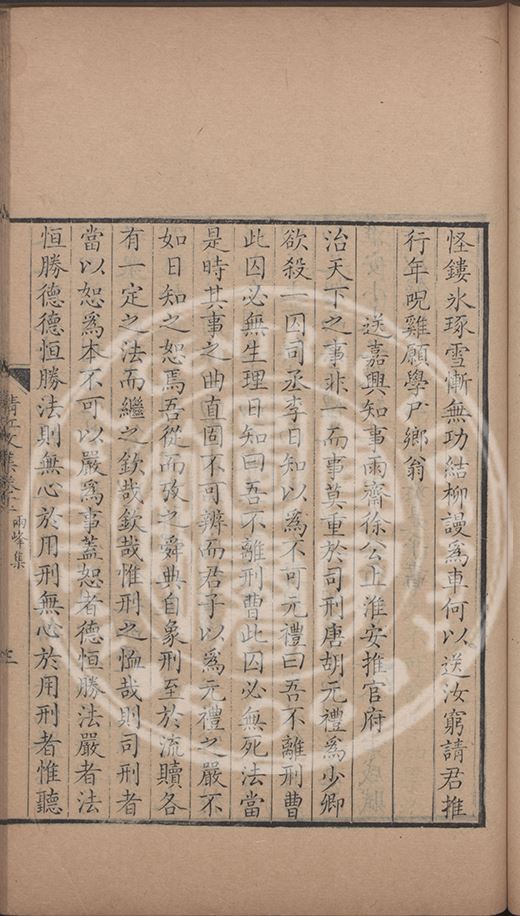 怪鏤氷琢雪慚無功結柳謾爲車何以送汝窮請君推
行年呪雞願學尸鄉翁
送嘉興知事雨齋徐公上淮安推官府
治天下之事非一而事莫重於司刑唐胡元禮爲少卿
欲殺一囚司丞李日知以爲不可元禮曰吾不離刑曹
此囚必無生理日知曰吾不離刑曹此囚必無死法當
是時其事之曲直固不可辨而君子以爲元禮之嚴不
如日知之恕焉吾從而攷之舜典自象刑至於流贖各
有一定之法而繼之欽哉欽哉惟刑之恤哉則司刑者
當以恕爲本不可以嚴爲事蓋恕者德恒勝法嚴者法
恒勝德德恒勝法則無心於用刑無心於用刑者惟聽
清江文集卷十二
兩峰集